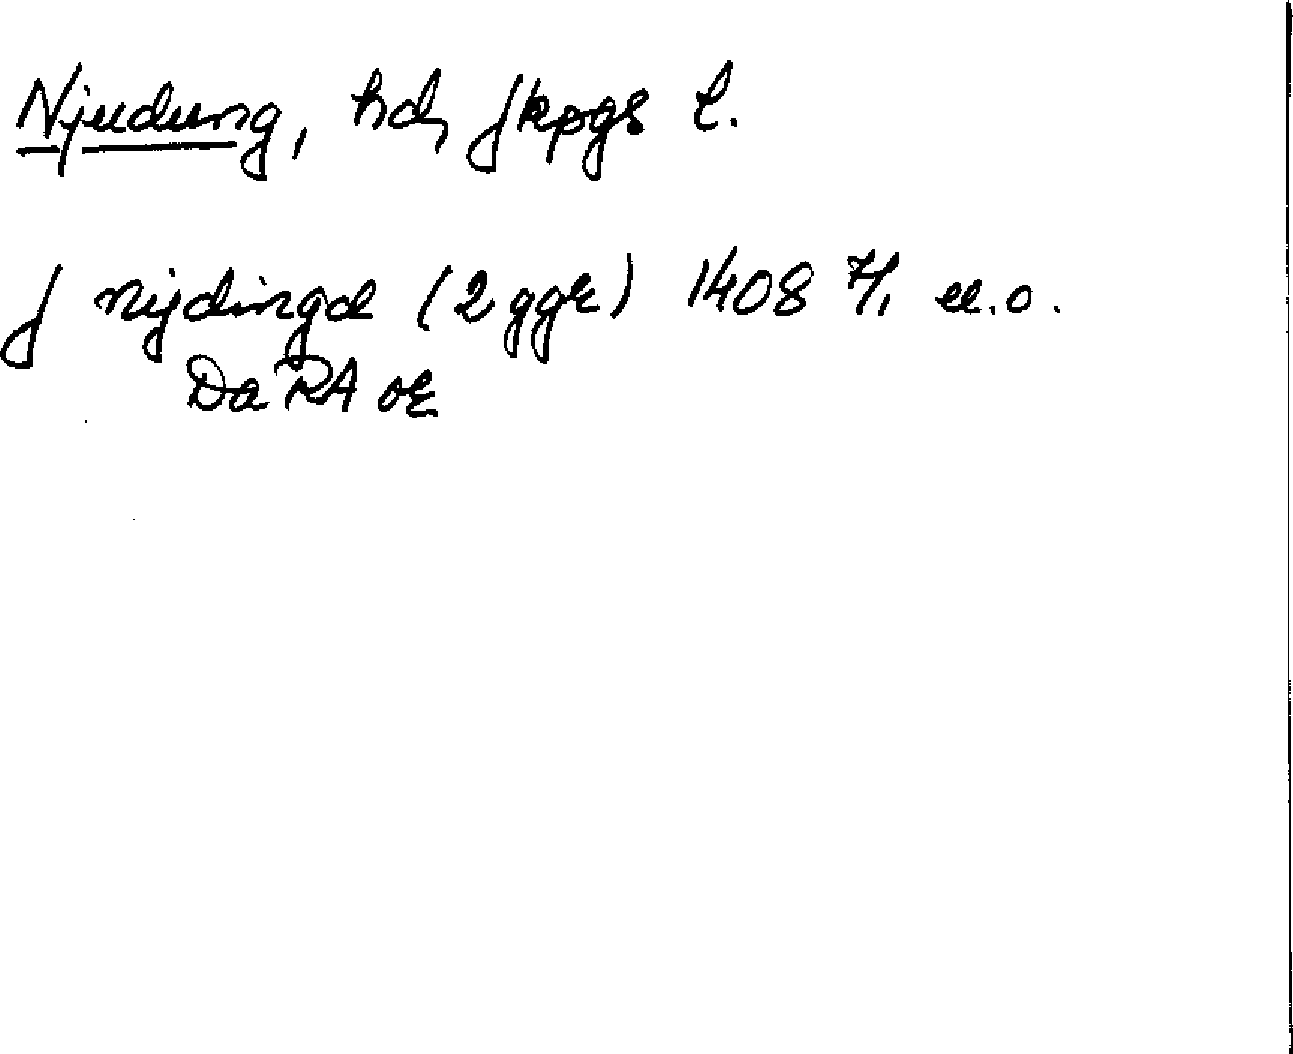 Njudung, hd, Jkpgs l.
J nijdingd (2 ggr) 1408 7/1 u.o.
Da RA or